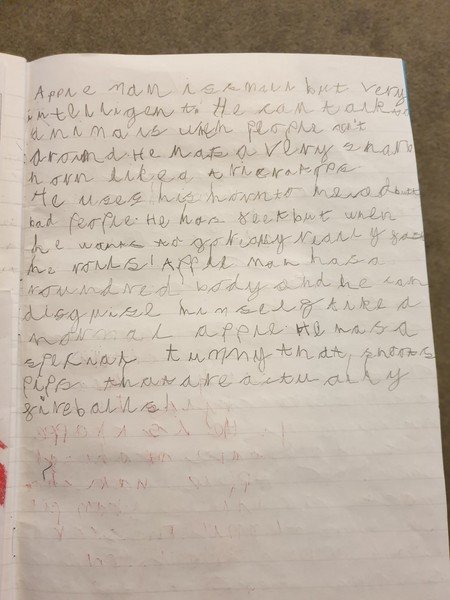 Apple Man is small but very
intelligent. He can talk to
animals when people ain't
around He has a very sharp
horn like a tricratops.
He uses his horn to head butt
bad people. He has feet but when
he wants to go really really fast
he rolls! Apple Man has a
round red body and he can
disguise himself like a
normal apple. He has a
special tummy that shoots
pips that are actually
fireballs!